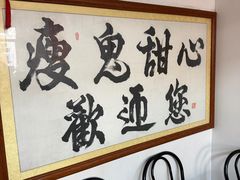 瘦鬼甜心
歡迎您